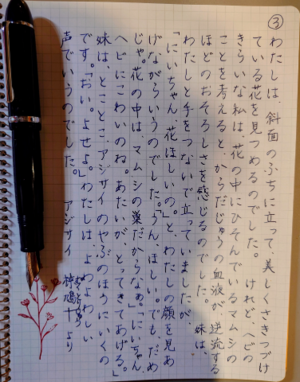 ③
わたしは 斜面のふちに立って、美しくさきつづけ
ている花を見つめるのでした。 けれど ヘビの
きらいな私は、花の中にひそんでいるマムシの
ことを考えると からだじゅうの血液が 逆流する
ほどのおそろしさを感じるのでした。 妹は、
わたしと手をつないで立っていましたが、
「にいちゃん 花ほしいの。」と、わたしの顔を見あ
げながらいうのでした。「うん、ほしい。でもだめ
じゃ。花の中はマムシの巣だからなぁ」「にいちゃん、
ヘビにこわいのね。あたいが、とってきてあげる。」
妹は、とことこ、アジサイのやぶのほうにいくの
です。「おい。よせよ。」わたしは、よわよわしい
声でいうのでした。 アジサイ
椋鳩十 より